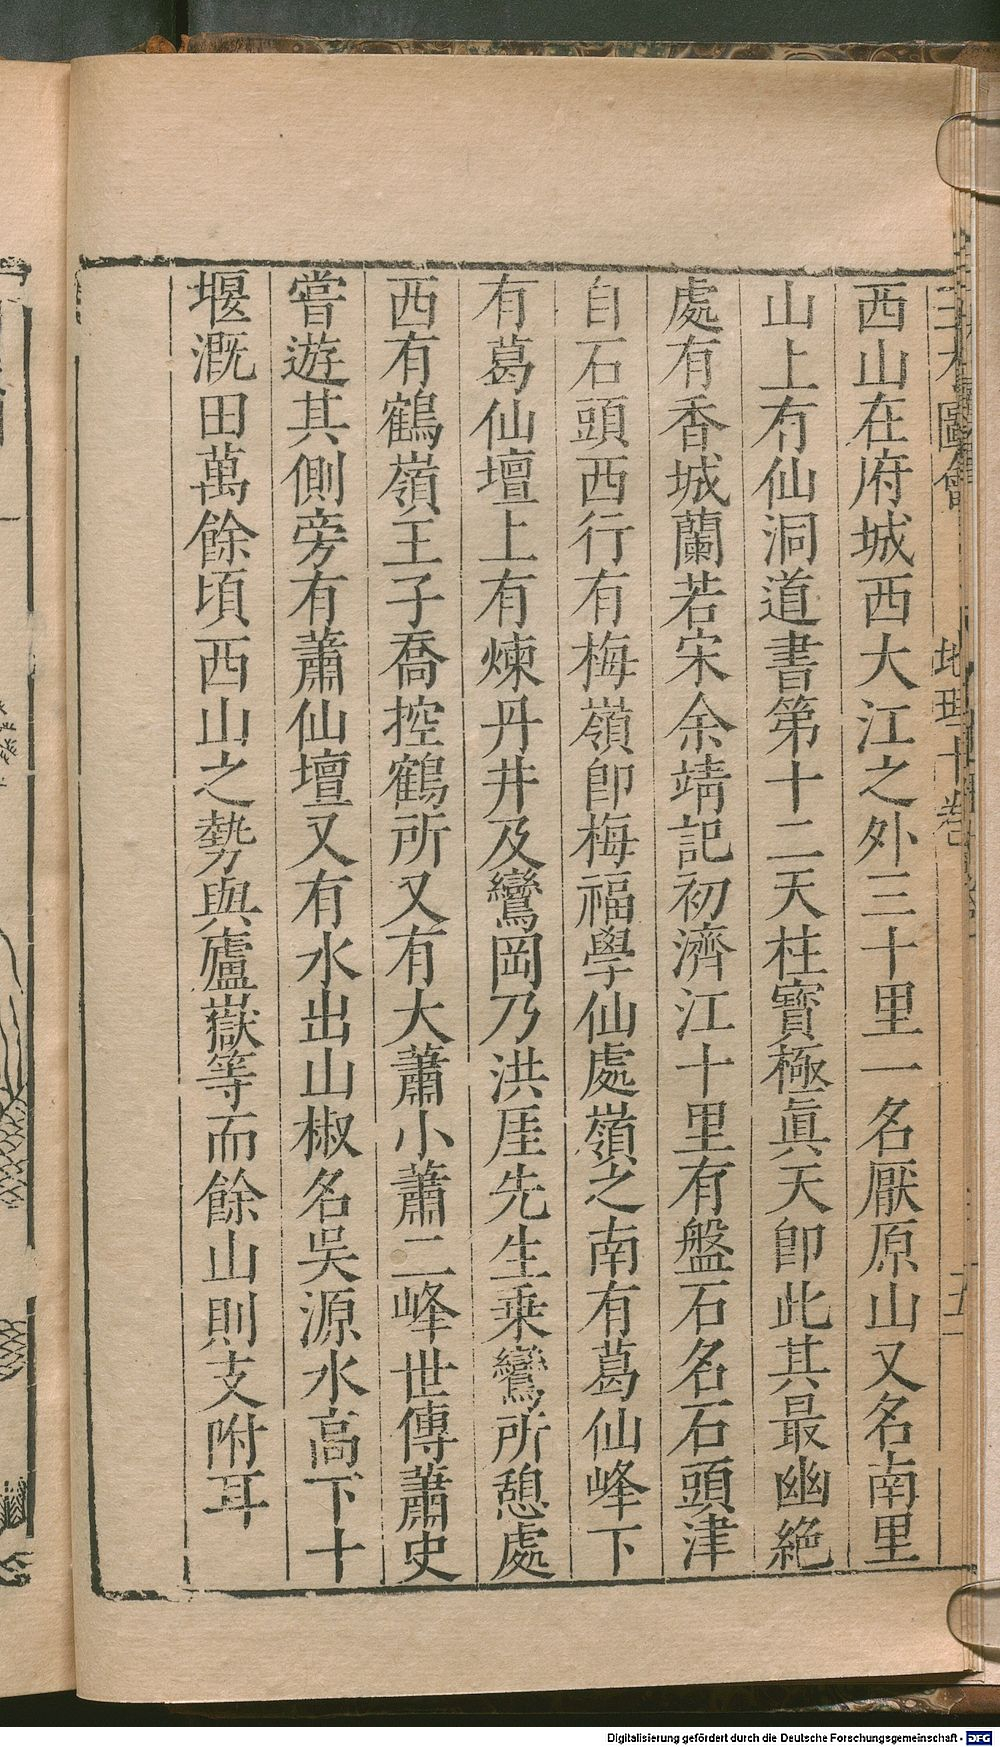 三才圖會
地理十卷
西山在府城西大江之外三十里一名厭原山又名南里
山上有仙洞道書第十二天柱寶極眞天卽此其最幽絶
處有香城蘭若宋余靖記初濟江十里有盤石名石頭津
自石頭西行有梅嶺卽梅福學仙處嶺之南有葛仙峰下
有葛仙壇上有煉丹井及鸞岡乃洪厓先生乗鸞所憩處
西有鶴嶺王子喬控鶴所又有大蕭小蕭二峰世傳蕭史
嘗遊其側旁有蕭仙壇又有水出山椒名吳源水高下十
堰漑田萬餘頃西山之勢與廬嶽等而餘山則支附耳
Digitalisierung gefördert durch die Deutsche Forschungsgemeinschaft - DFG